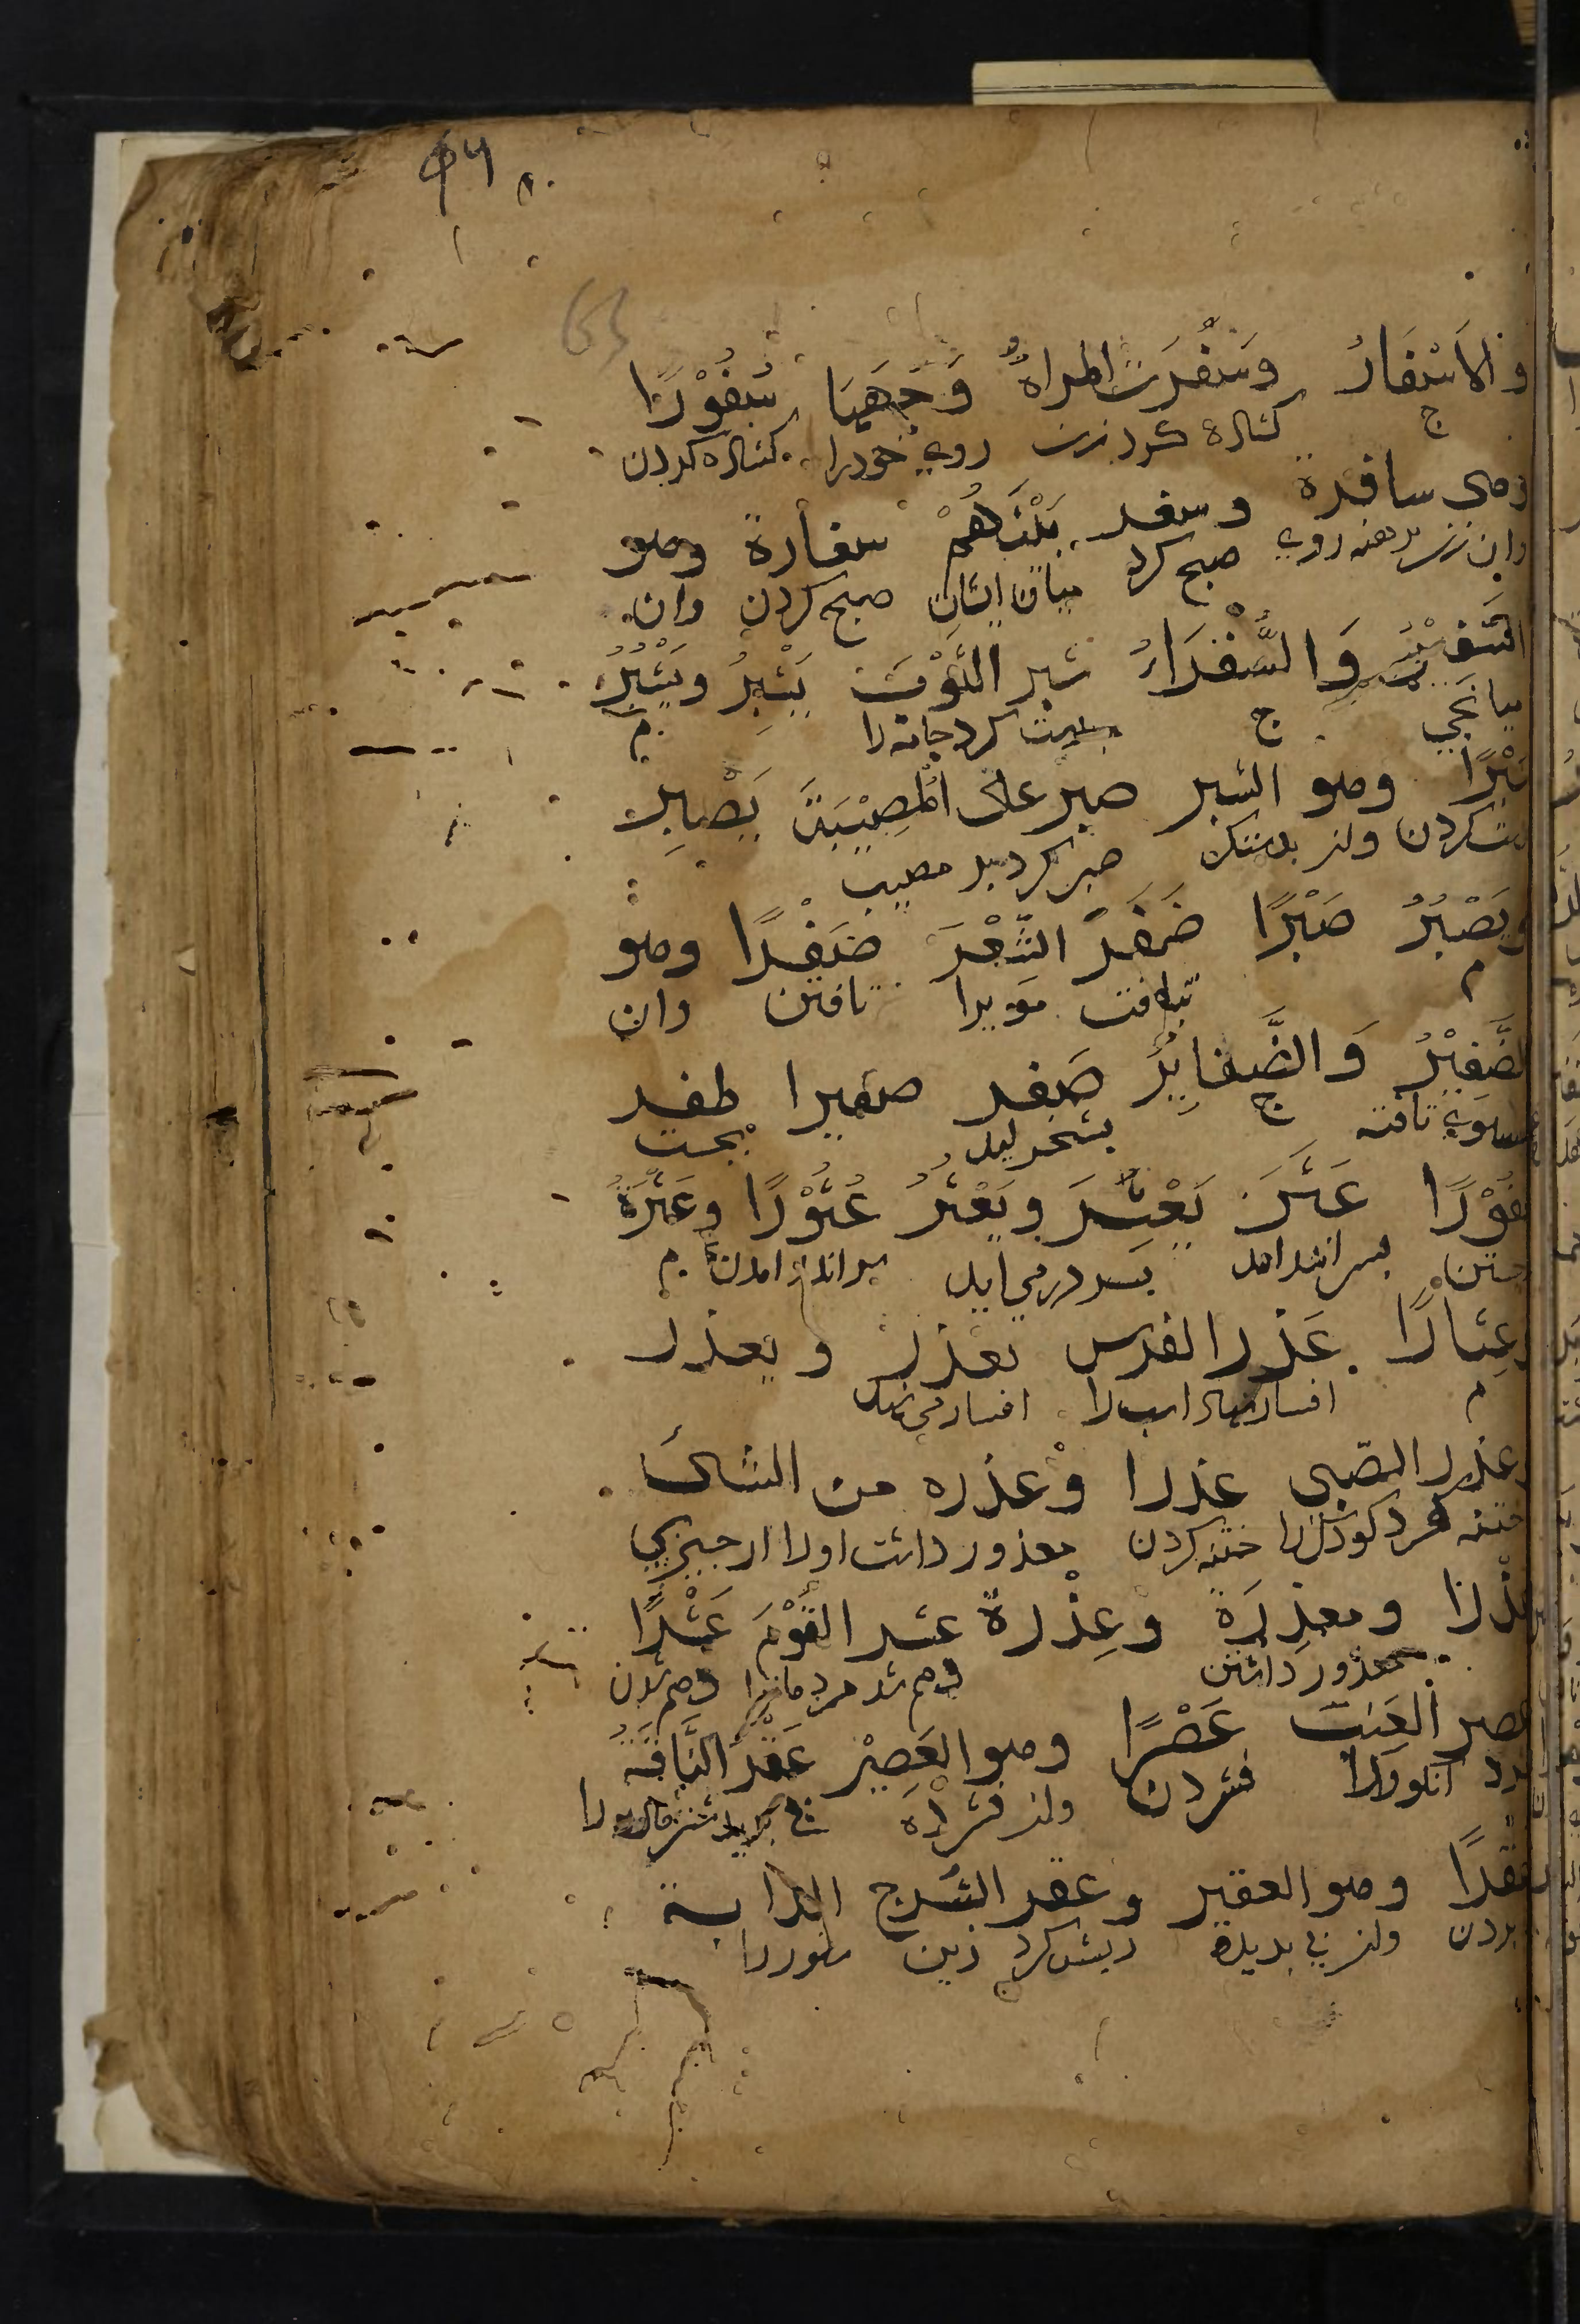 والاسْفَارُ وسَفَرَتِ المراةُ وَجْهَهَا سُفُوْرًا
ج كشاده كرد زن روي خودرا كشاده كردن
وهى سافرة وسفر بَيْنَهُمْ سفارة وهو
وان زن برهنه روي صلح كرد ميان ايشان صلح كردن وان
السَّفِيْرُ وَالسُّفَرَاءُ شبر الثَّوْبَ يَشْبِرُ ويَشْبُرُ
ميانجي ج بدست كرد جامه را م
شَبْرًا وهو الشبر صبر على المُصِيْبَةِ يَصْبِرُ
صبر كرد بر مصيبت
ويَصْبُرُ صَبْرًا ضَفَرَ الشَّعْرَ ضَفْرًا وهو
م بتافت مويرا تافتن وان
الضَّفِيْرُ وَالضَّفَايِرُ صَفر صفيرا طفر
تافته ج بجست
طُفُوْرًا عَثَرَ يَعْثِرُ ويَعْثُرُ عُثُوْرًا وعَثْرَةً
جستن بسر اندر امد بسر درمي ايد بسر اندر امدن م
وعِثَارًا عَذر الفرس يعذر ويعذر
م افسار نهاد اسب را افسار مي نهد
وعذر الصّبى عذرا وعذره من الشئ
ختنه كرد كودك را ختنه كردن معذور داشت اورا از چيزي
عُذْرًا ومعذِرَةً وعِذْرة عشر القَوْمَ عَشْرًا
معذور داشتن دهم شد مردمانرا دهم شدن
عصر العِنَبَ عَصْرًا وهو العَصِيْرُ عَقَرَ النَّاقَةَ
انكور را فشردن وان فشرده پى بريد شتر ماده را
عقرًا وهو العقير وعقر السَّرج الدابة
بريدن وان پى بريده ريش كرد زين ستوررا